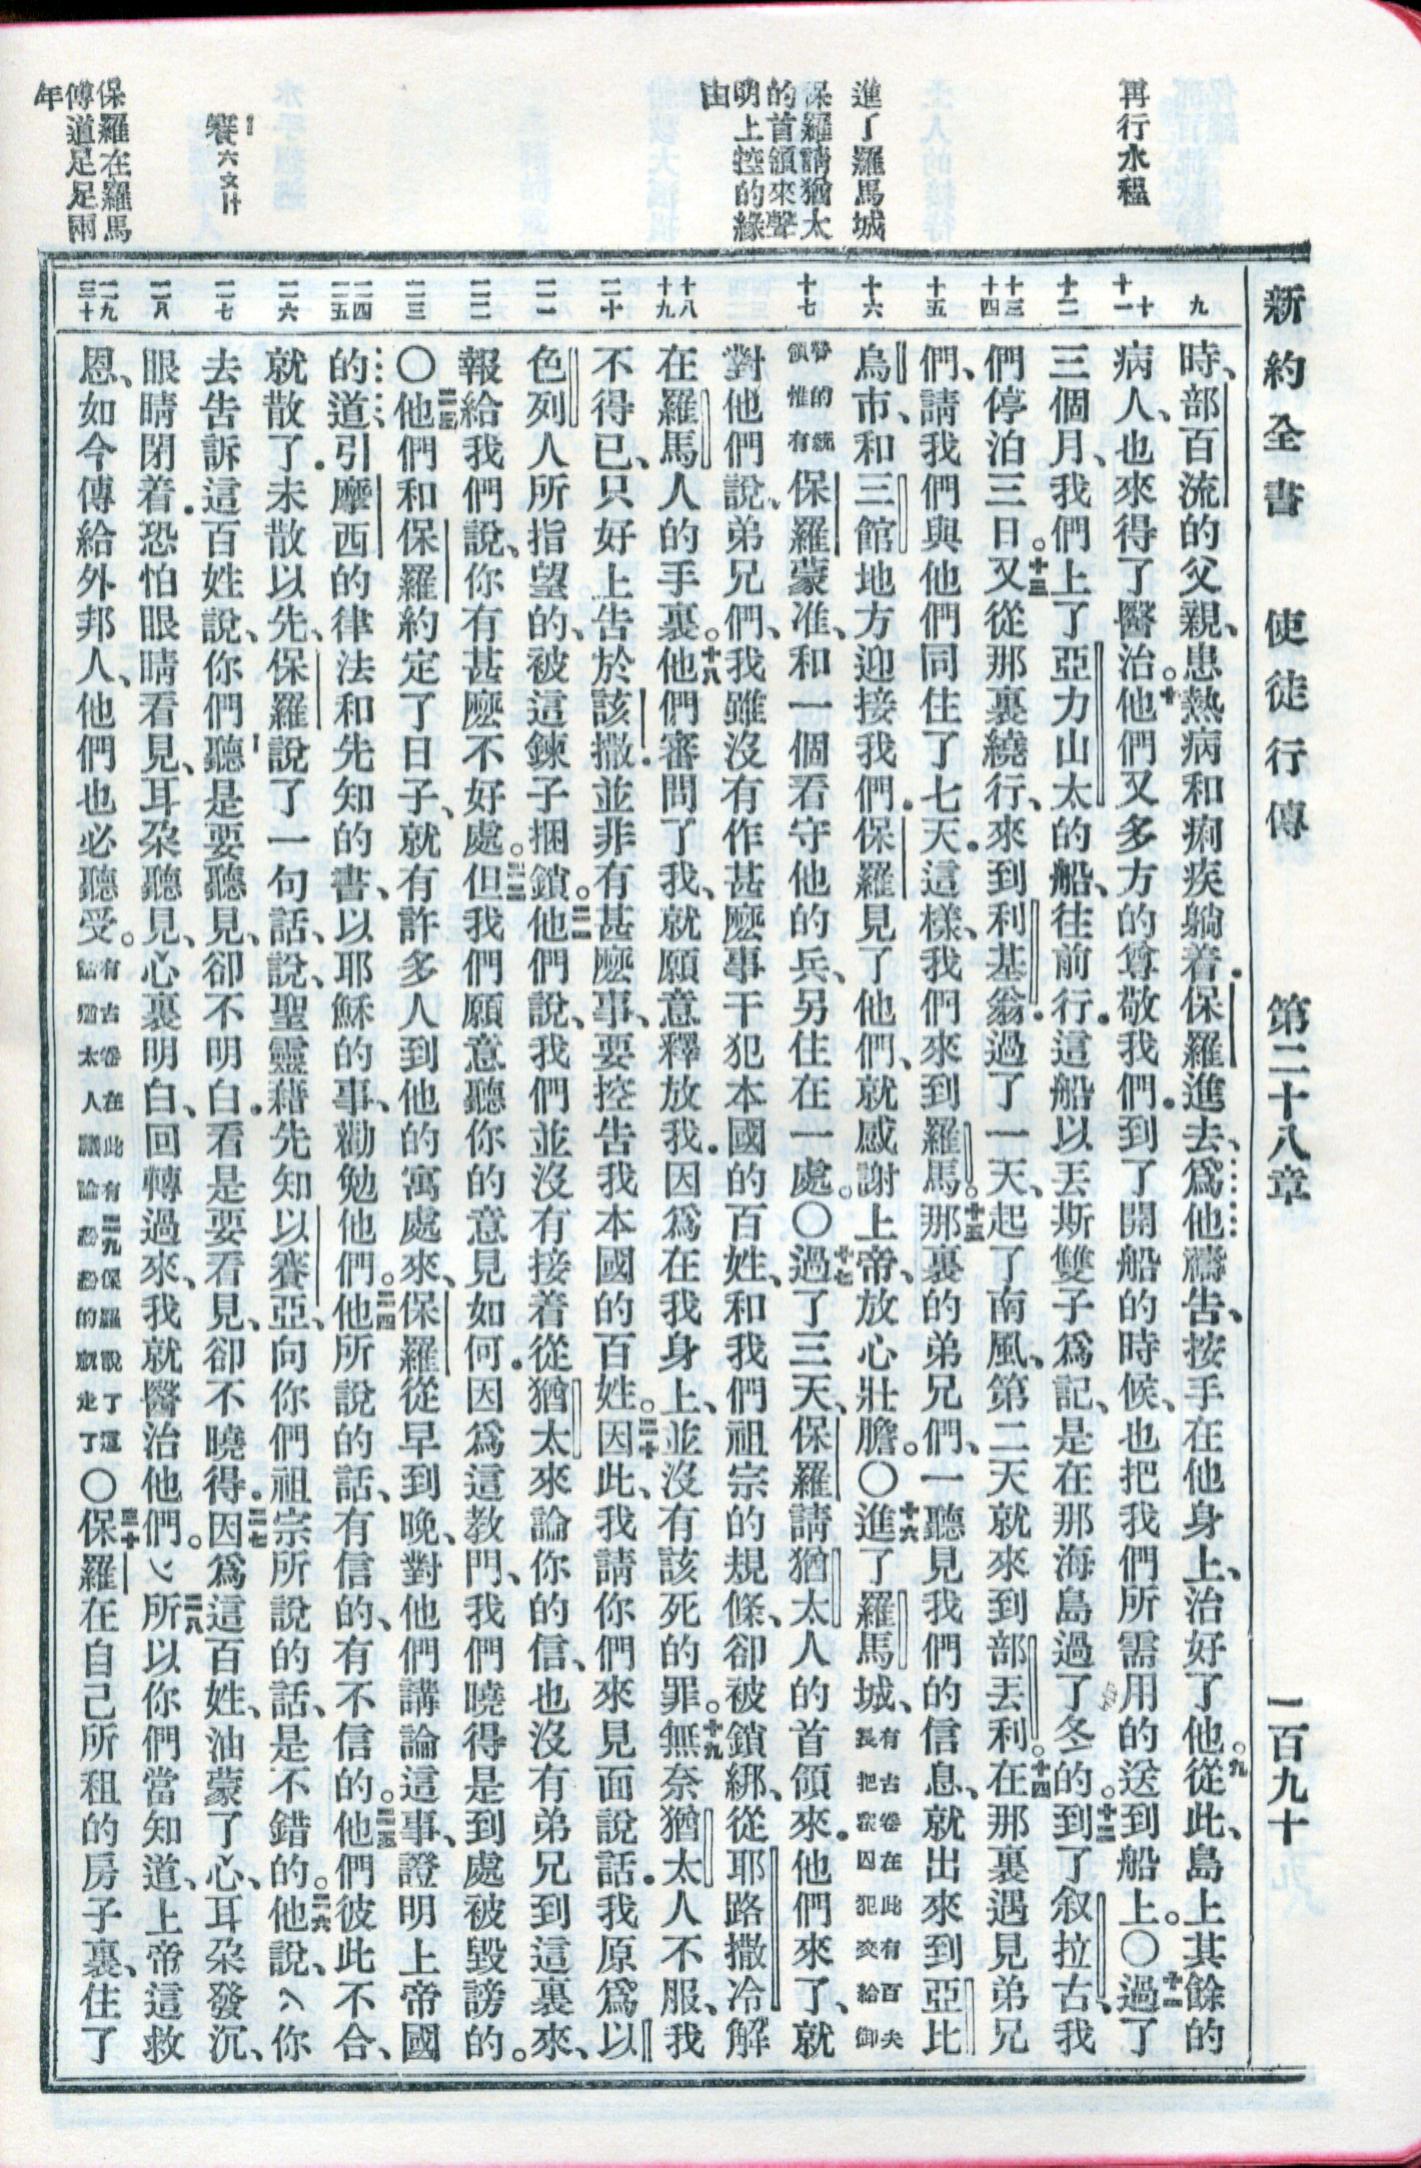 新約全書 使徒行傳 第二十八章 一百九十
再行水程
進了羅馬城
保羅請猶太
的首領來聲
明上控的緣
由
賽六文廿
保羅在羅馬
傳道足足兩
年
九
十
十一
十二
十三
十四
十五
十六
十七
十八
十九
二十
二一
二二
二三
二四
二五
二六
二七
二八
二九
三十
時、部百流的父親、患熱病和痢疾躺着．保羅進去、爲他禱告、按手在他身上、治好了他。九從此、島上其餘的
病人、也來得了醫治。十他們又多方的尊敬我們．到了開船的時候、也把我們所需用的送到船上。〇十一過了
三個月、我們上了亞力山太的船、往前行．這船以丟斯雙子爲記、是在那海島過了冬的。十二到了叙拉古、我
們停泊三日。十三又從那裏繞行、來到利基翁．過了一天、起了南風、第二天就來到部丟利。十四在那裏遇見弟兄
們、請我們與他們同住了七天．這樣、我們來到羅馬。十五那裏的弟兄們、一聽見我們的信息、就出來到亞比
烏市、和三館地方迎接我們．保羅見了他們、就感謝上帝、放心壯膽。〇十六進了羅馬城、有古卷在此有百夫長把衆囚犯交給御
營的統領惟有保羅蒙准、和一個看守他的兵、另住在一處。〇十七過了三天、保羅請猶太人的首領來．他們來了、就
對他們說、弟兄們、我雖沒有作甚麼事干犯本國的百姓、和我們祖宗的規條、卻被鎖綁、從耶路撒冷解
在羅馬人的手裏。十八他們審問了我、就願意釋放我．因爲在我身上、並沒有該死的罪。十九無奈猶太人不服、我
不得已、只好上告於該撒．並非有甚麼事、要控告我本國的百姓。二十因此、我請你們來見面說話．我原爲以
色列人所指望的、被這鍊子捆鎖。二一他們說、我們並沒有接着從猶太來論你的信、也沒有弟兄到這裏來、
報給我們說、你有甚麼不好處。二二但我們願意聽你的意見如何．因爲這教門、我們曉得是到處被毀謗的。
〇二三他們和保羅約定了日子、就有許多人到他的寓處來、保羅從早到晚、對他們講論這事、證明上帝國
的道、引摩西的律法和先知的書、以耶穌的事、勸勉他們。二四他所說的話、有信的、有不信的。二五他們彼此不合、
就散了．未散以先、保羅說了一句話、說、聖靈藉先知以賽亞、向你們祖宗所說的話、是不錯的。二六他說、你
去告訴這百姓說、你們聽是要聽見、卻不明白．看是要看見、卻不曉得．二七因爲這百姓、油蒙了心、耳朶發沉、
眼睛閉着．恐怕眼睛看見、耳朶聽見、心裏明白、回轉過來、我就醫治他們。二八所以你們當知道、上帝這救
恩、如今傳給外邦人、他們也必聽受。有古卷在此有二九保羅說了這話猶太人議論紛紛的就走了〇三十保羅在自己所租的房子裏、住了